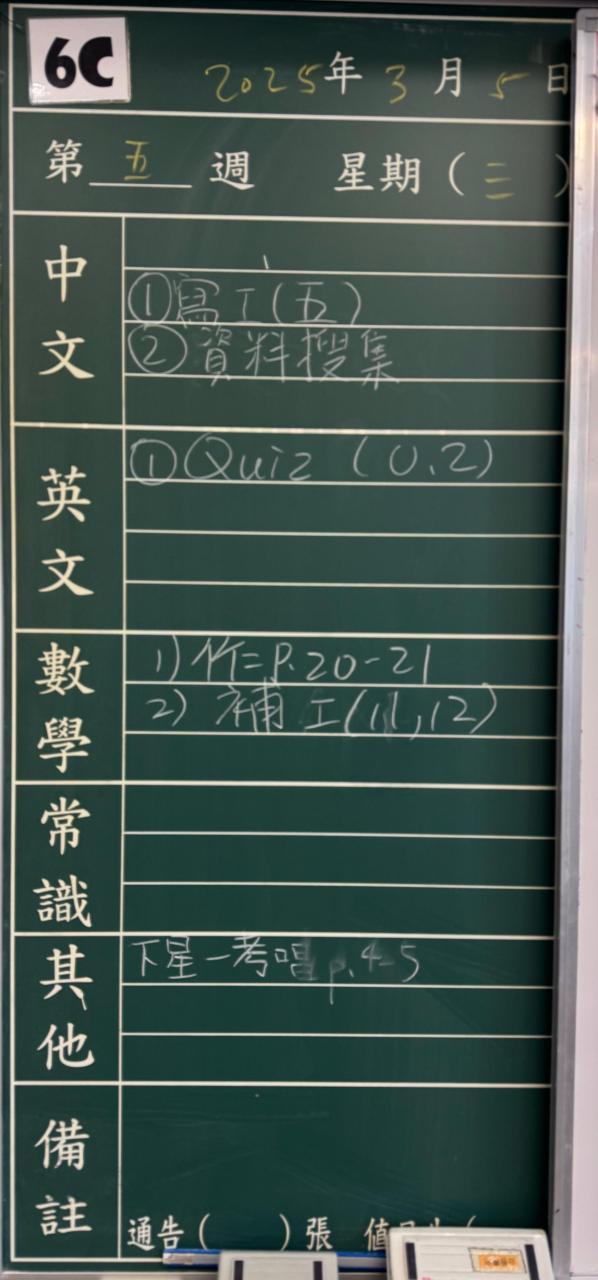 6C
2025年3月5日
第五週 星期(三)
中文
①寫工(五)
②資料搜集
英文
①Quiz (U.2)
數學
1) 作二P.20-21
2) 補工(11,12)
常識
其他
下星一考唱p.4-5
備註
通告( )張